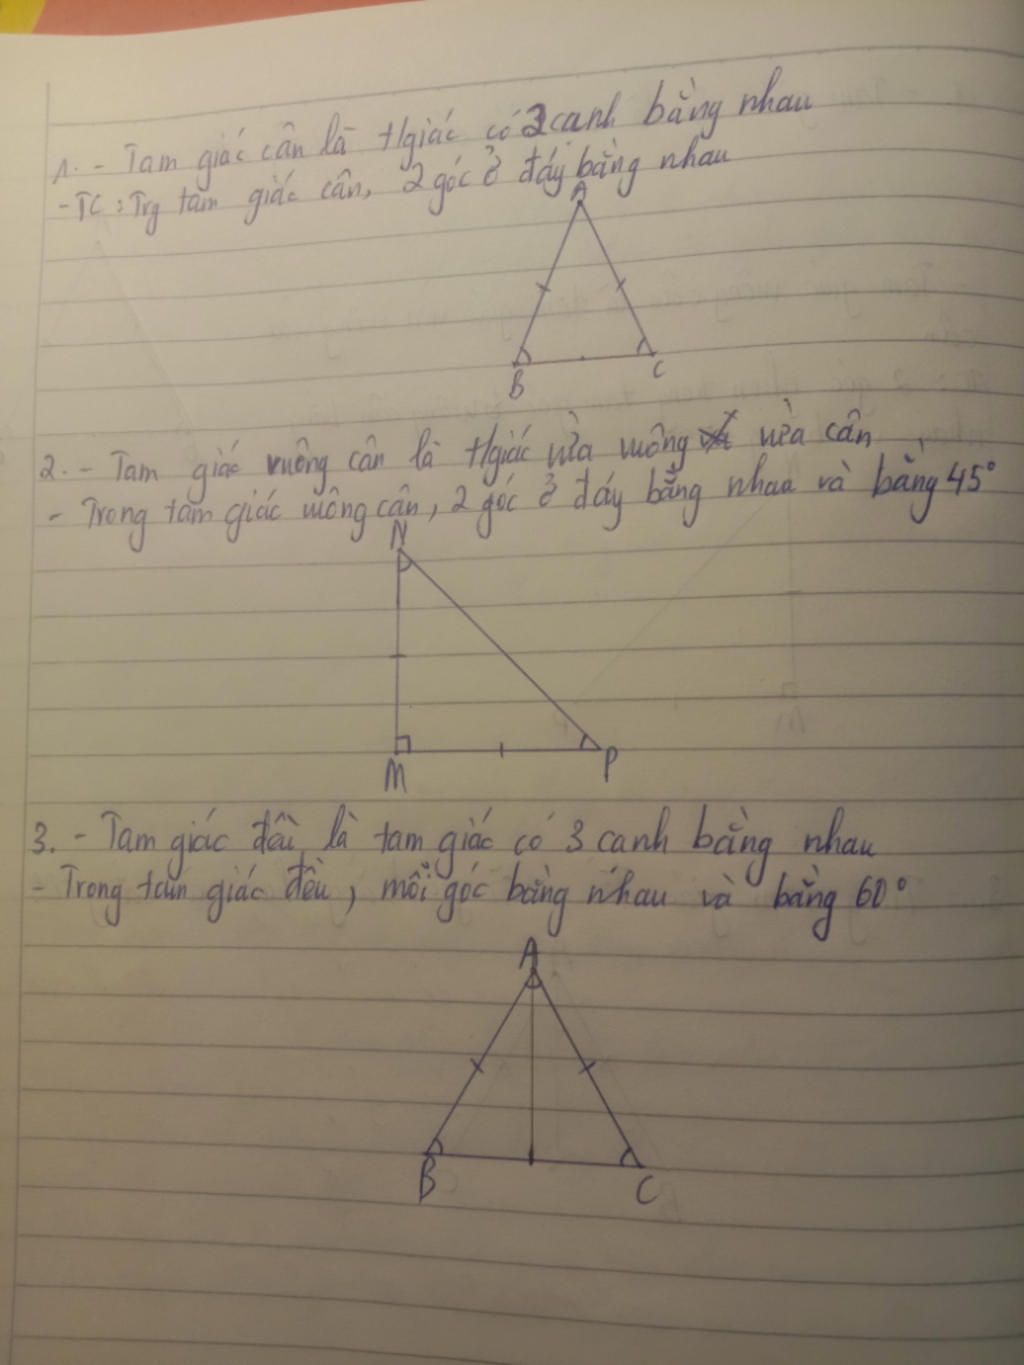 1. - Tam giác cân là t/giác có 2 cạnh bằng nhau
- TC: Trg tam giác cân, 2 góc ở đáy bằng nhau
A
B
C
2. - Tam giác vuông cân là t/giác vừa vuông vừa cân
- Trong tam giác vuông cân, 2 góc ở đáy bằng nhau và bằng 45°
N
M
P
3. - Tam giác đều là tam giác có 3 canh bằng nhau
- Trong tam giác đều, mỗi góc bằng nhau và bằng 60°
A
B
C